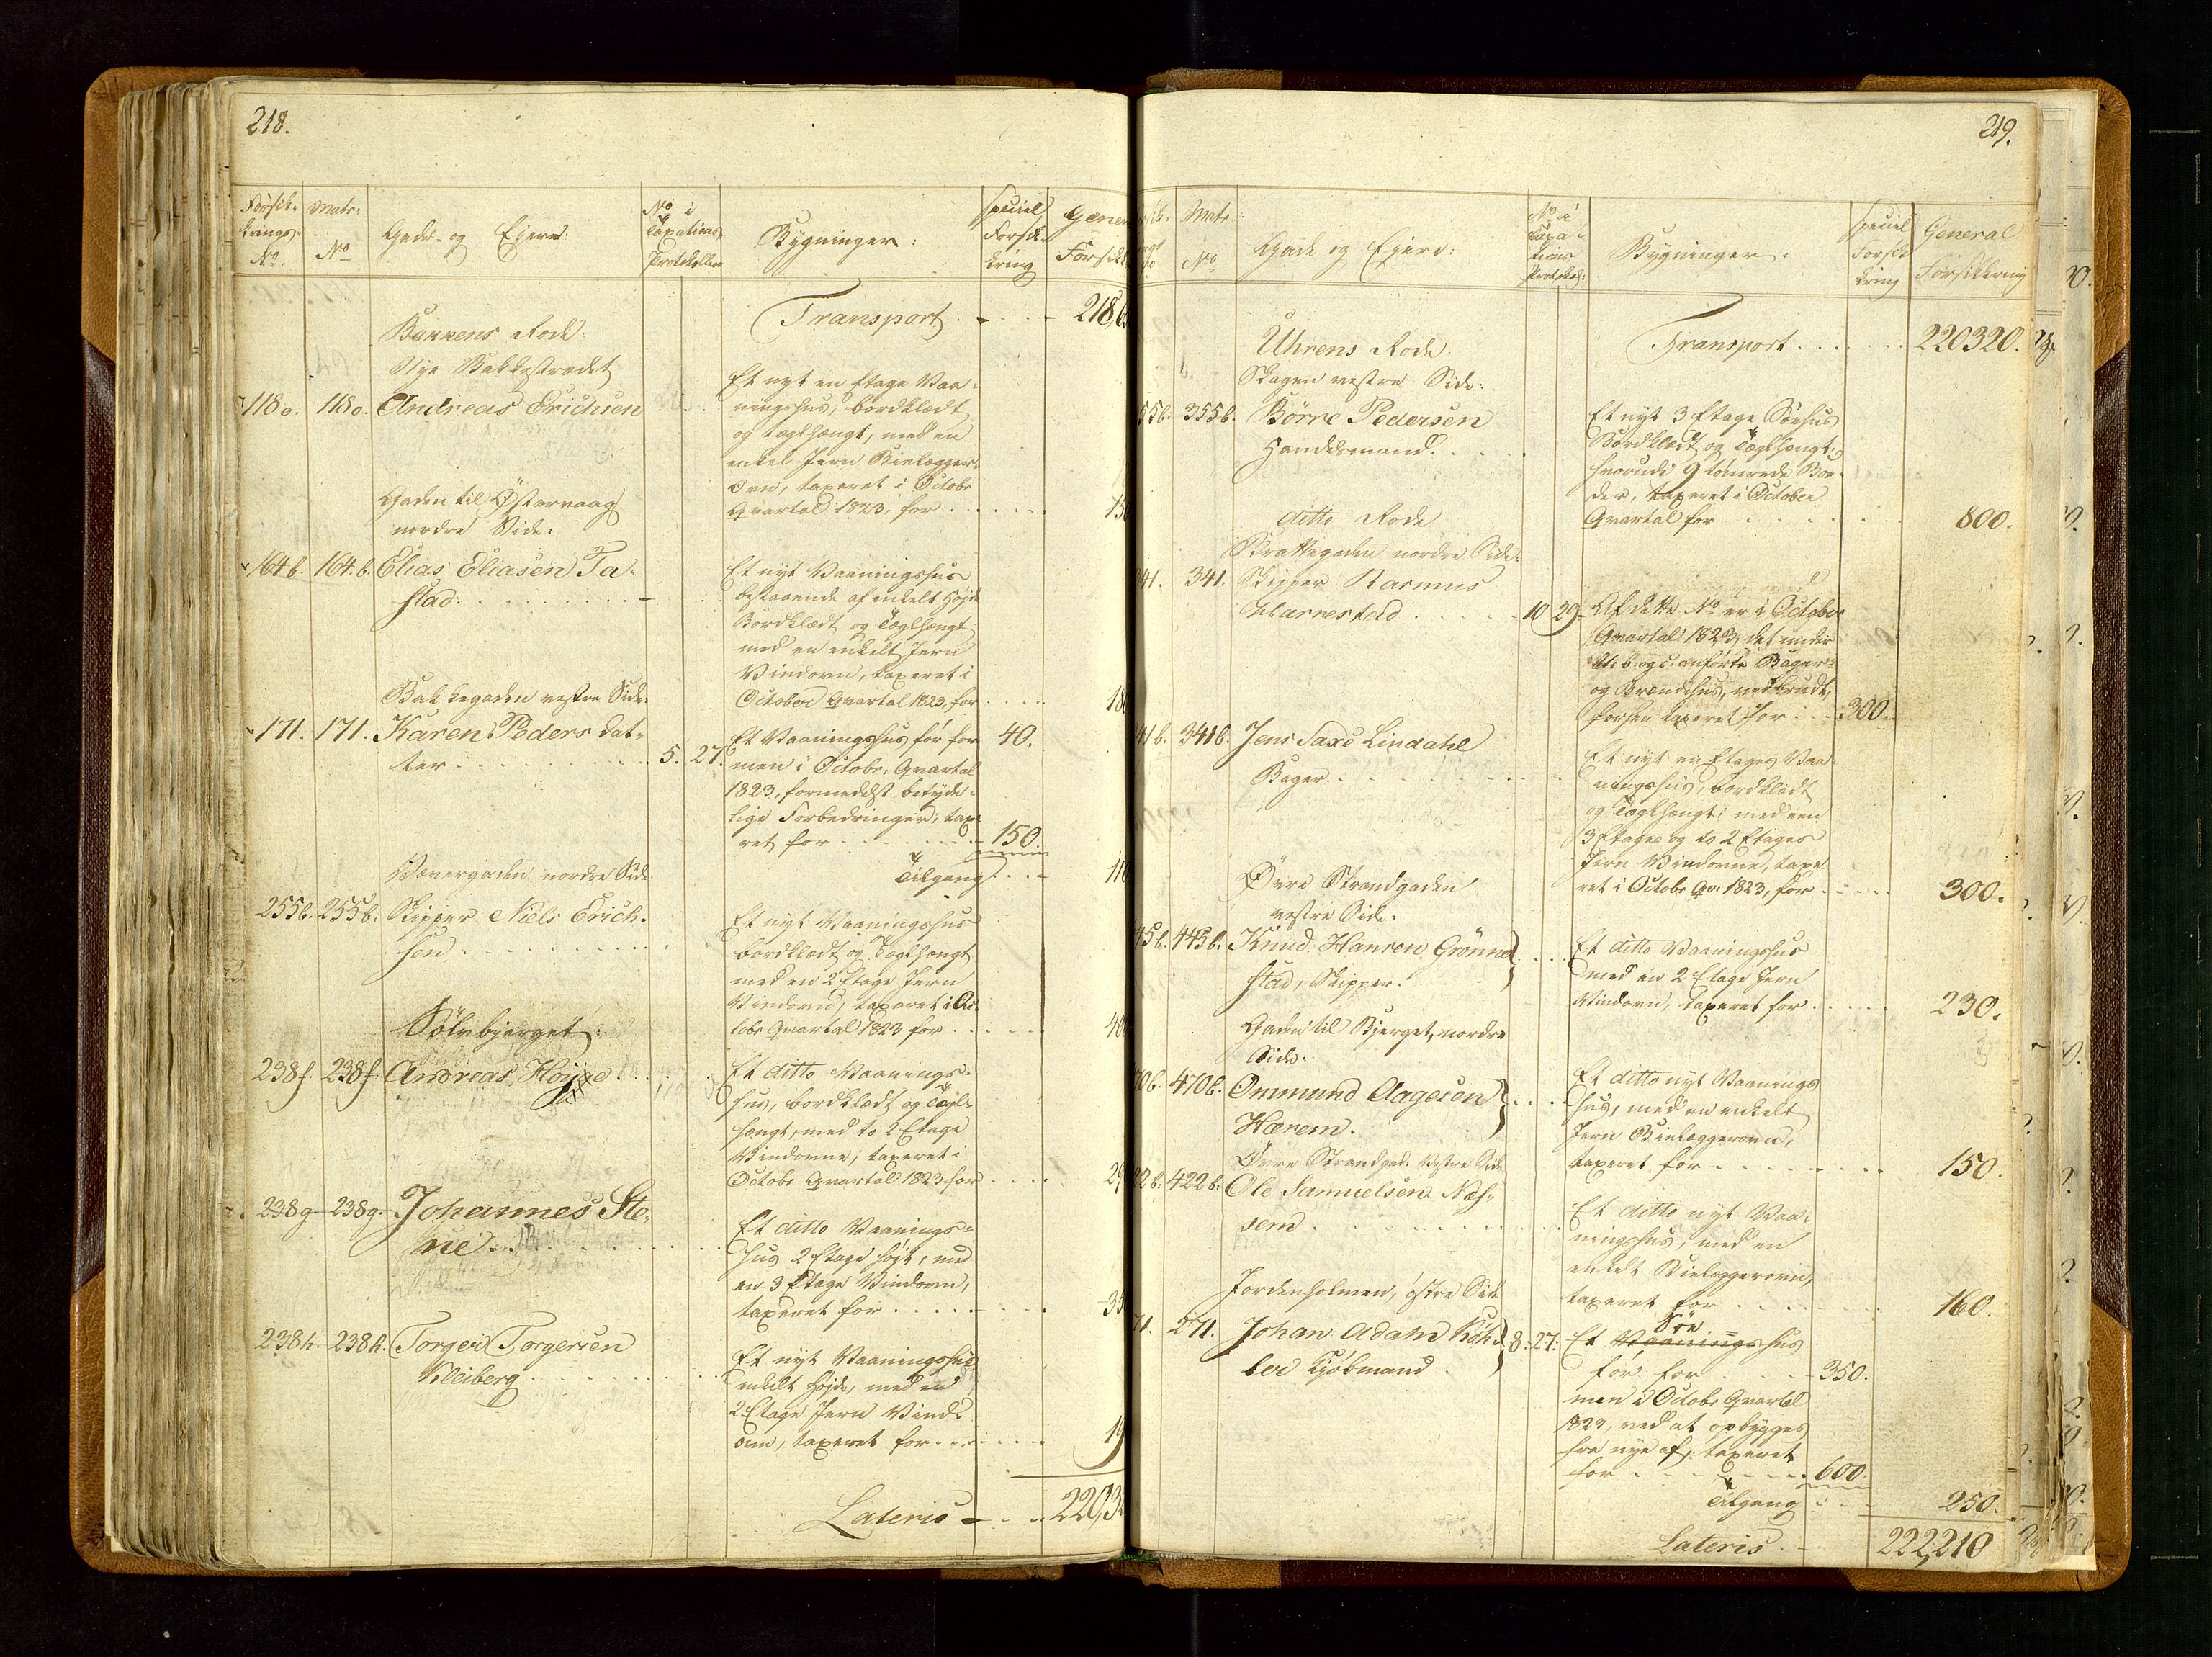 218.
Forsik- Matr: Gade- og Ejere: No i Bygninger: Speciel Gener
krings- No Taxations Forsik- Forsikk
No. Protokollen kring
Transport . - - - 218,6
Bakkens Rode.
Nye Bakkestrædet
118o. 118o. Andreas Erichsen
Et nyt en Etage Vaa-
ningshus, bordklædt
og tæglhængt, med en
enkel Jern Bielægger-
Ovn, taxeret i Octobr
Qvartal 1823, for . . . . . . 15
Gaden til Østervaag
nordre Side:
164b. 164.b. Elias Eliasen Ta-
stad. . . . . . . . .
Et nyt Vaaningshus
bestaaende af enkelt Højde
Bordklædt og Tæglhængt
med en enkelt Jern
Vindovn, taxeret i
October Qvartal 1823, for . . . . 18
Bakkegaden vestre Side.
171. 171. Karen Peders dat-
ter . . . . . . . . . 5. 27.
Et Vaaningshus før for 40.
men i Octobr. Qvartal
1823, formedelst betyde-
lige Forbedringer, taxe
ret for . . . . . . . 150.
Tilgang . . . 110
Vævergaden nordre Side.
255b. 255b. Skipper Niels Erich-
sen . . . . . . . .
Et nyt Vaaningshus
bordklædt og Tæglhængt
med en 2 Etage Jern
Vindovn, taxeret i Oc-
tobr Qvartal 1823 for . . . . . 40
Sölvbjerget:
238f. 238f. Andreas Höyge . . . .
Et ditto Vaanings-
hus, bordklædt og Tægl-
hængt, med to 2 Etage
Vindovne, taxeret i
Octobr Qvartal 1823 for . . . . 29
238g. 238g. Johannes Ste-
ne . . . . . . . . .
Et ditto Vaanings-
hus 2 Etage højt, med
en 3 Etage Vindovn,
taxeret for . . . . . . . 35
238h. 238h. Torger Torgersen
Kleiberg . . . . . . . .
Et nyt Vaaningshus
enkelt Højde, med en
2 Etage Jern Vind-
ovn, taxeret for . . . . . . . 19
Lateris - . . . 220,3
219.
Matr Gade og Ejere: No i Bygninger. Speciel General
No Taxa- Forsik Forsikkring
tions kring
Protokol:
Transport . . . . . . . 220320.
Uhrens Rode.
Skagen vestre Side:
55b. 355b. Börre Pedersen
Handelsmand. . . . .
Et nyt 3 Etage Söehus
Bordklædt og Tæglhængt,
hvorudi 9 tömrede Boe-
der, taxeret i October
Qvartal for . . . . . . . 800.
ditto Rode
Brattegaden nordre Side.
41. 341. Skipper Rasmus
Harrestad . . . . . 10 29.
Af dette No er i October
Qvartal 1823, det under
Ltr b. og c. anförte Bager-
og Brændehus, nedbrudt,
forhen taxeret for . . . 300.
41b. 341b. Jens Saxe Lindahl
Bager . . . . . . . . .
Et nyt en Etages Vaa-
ningshus, bordklædt
og Tæglhængt; med een
3 Etages og to 2 Etages
Jern Vindovne, taxe
ret i Octobr Qv. 1823, for . . . . . 300.
Övre Strandgaden
vestre Side.
45b. 445b. Knud Hansen Grönne-
stad, Skipper.
Et ditto Vaaningshus
med en 2 Etage Jern
Vindovn, taxeret for . . . . . 230.
Gaden til Bjerget, nordre
Side.
70b. 470b. Ommund Aagesen
Hærem.
Et ditto nyt Vaanings
hus, med en enkelt
Jern Bielæggerovn,
taxeret for . . . . . . . . . 150.
Övre Strandgad. Vestre Side
22b. 422b. Ole Samuelsen Næs-
sem . . . . . . . .
Et ditto nyt Vaa-
ningshus, med en
enkelt Bielæggerovn,
taxeret for . . . . . . . 160.
Jordenholmen, östre Side
71. 271. Johan Adam Köh- 8. 27.
ler Kjöbmand .
Söe
Et Vaaningshus
för for . . . . 350.
men i Octobr. Qvartal
1823, ved at opbygges
fra nye af, taxeret
for . . . . . . . . 600.
Tilgang . . . 250.
Lateris . . 222,210